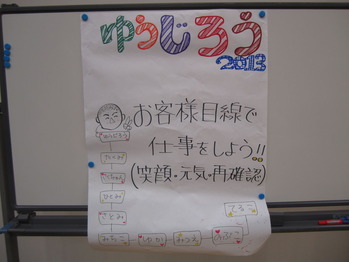 ゆうじろう
2013
お客様目線で
仕事をしよう!!
(笑顔・元気・再確認)
ゆうじろう
たくみ
ひとみ
さとみ
みちこ
ゆか
みつる
てるこ